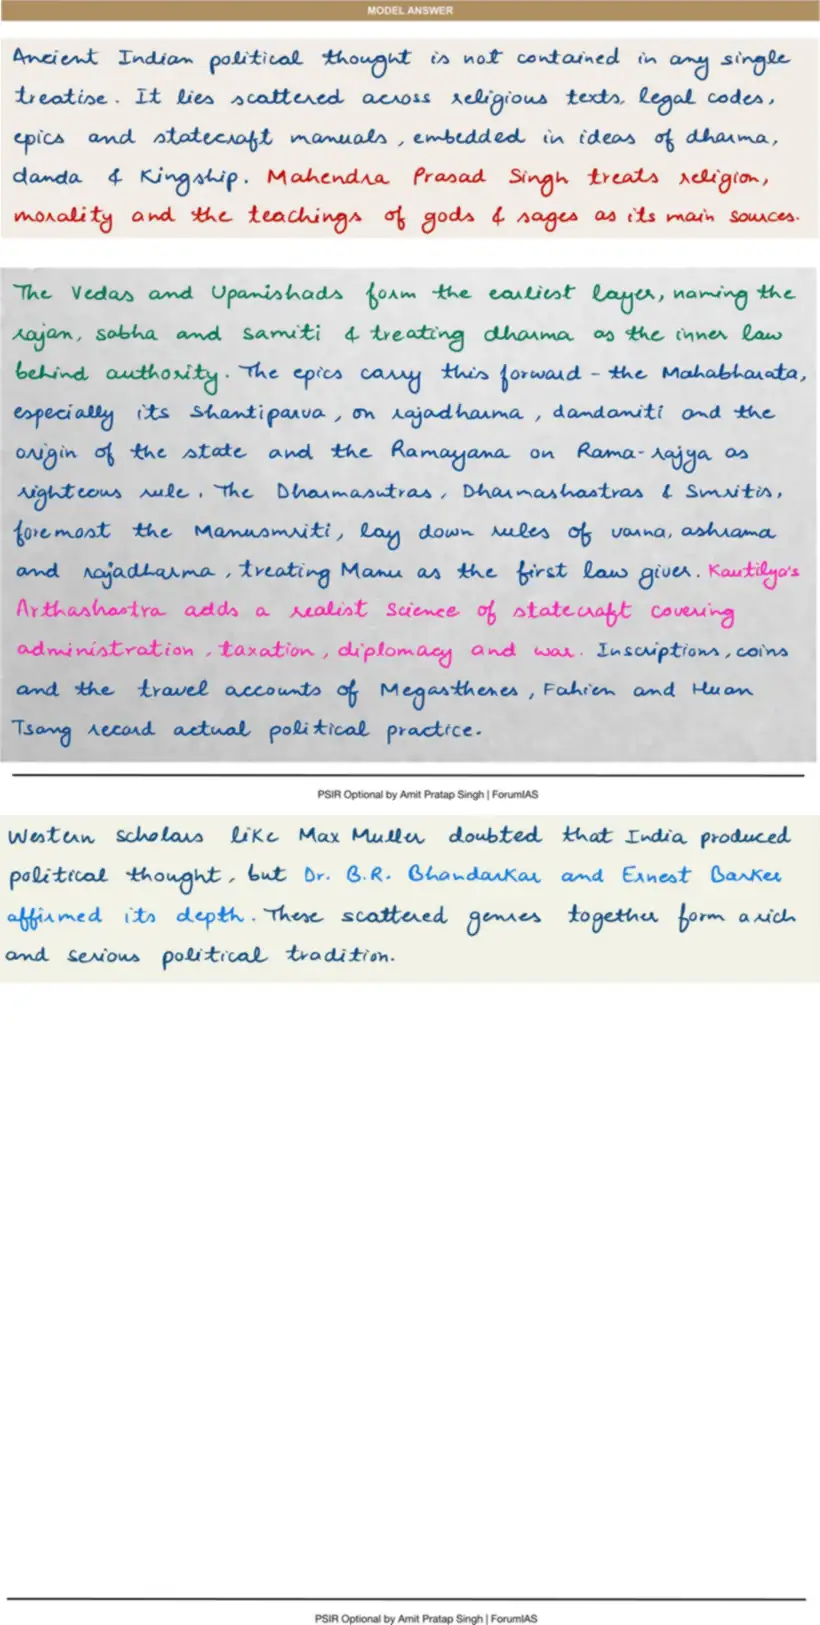 MODEL ANSWER
Ancient Indian political thought is not contained in any single
treatise. It lies scattered across religious texts, legal codes,
epics and statecraft manuals, embedded in ideas of dharma,
danda & Kingship. Mahendra Prasad Singh treats religion,
morality and the teachings of gods & sages as its main sources.
The Vedas and Upanishads form the earliest layer, naming the
rajan, sabha and samiti & treating dharma as the inner law
behind authority. The epics carry this forward - the Mahabharata,
especially its Shantiparva, on rajadharma, dandaniti and the
origin of the state and the Ramayana on Rama-rajya as
righteous rule. The Dharmasutras, Dharmashastras & Smritis,
foremost the Manusmriti, lay down rules of varna, ashrama
and rajadharma, treating Manu as the first law giver. Kautilya's
Arthashastra adds a realist science of statecraft covering
administration, taxation, diplomacy and war. Inscriptions, coins
and the travel accounts of Megasthenes, Fahien and Huan
Tsang record actual political practice.
PSIR Optional by Amit Pratap Singh | ForumIAS
Western scholars like Max Muller doubted that India produced
political thought, but Dr. B.R. Bhandarkar and Ernest Barker
affirmed its depth. These scattered genres together form a rich
and serious political tradition.
PSIR Optional by Amit Pratap Singh | ForumIAS